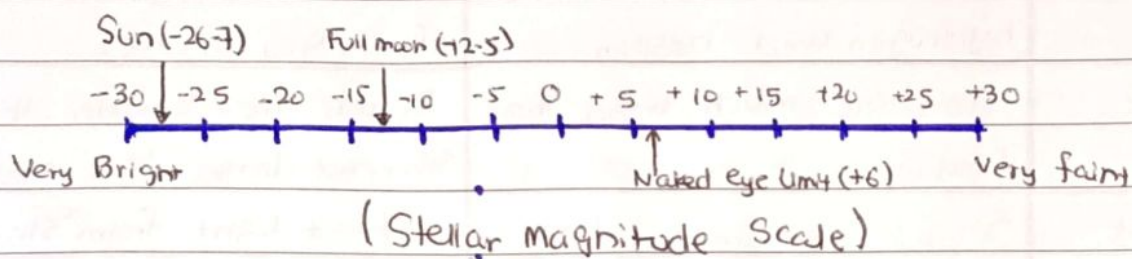 Sun (-26.7) Full moon (-12.5)
-30 -25 -20 -15 -10 -5 0 +5 +10 +15 +20 +25 +30
Very Bright Naked eye limit (+6) Very faint
(Stellar magnitude Scale)